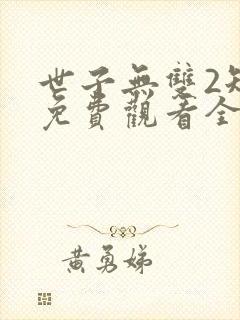 世子無雙2
免費觀看全
黃勇娣